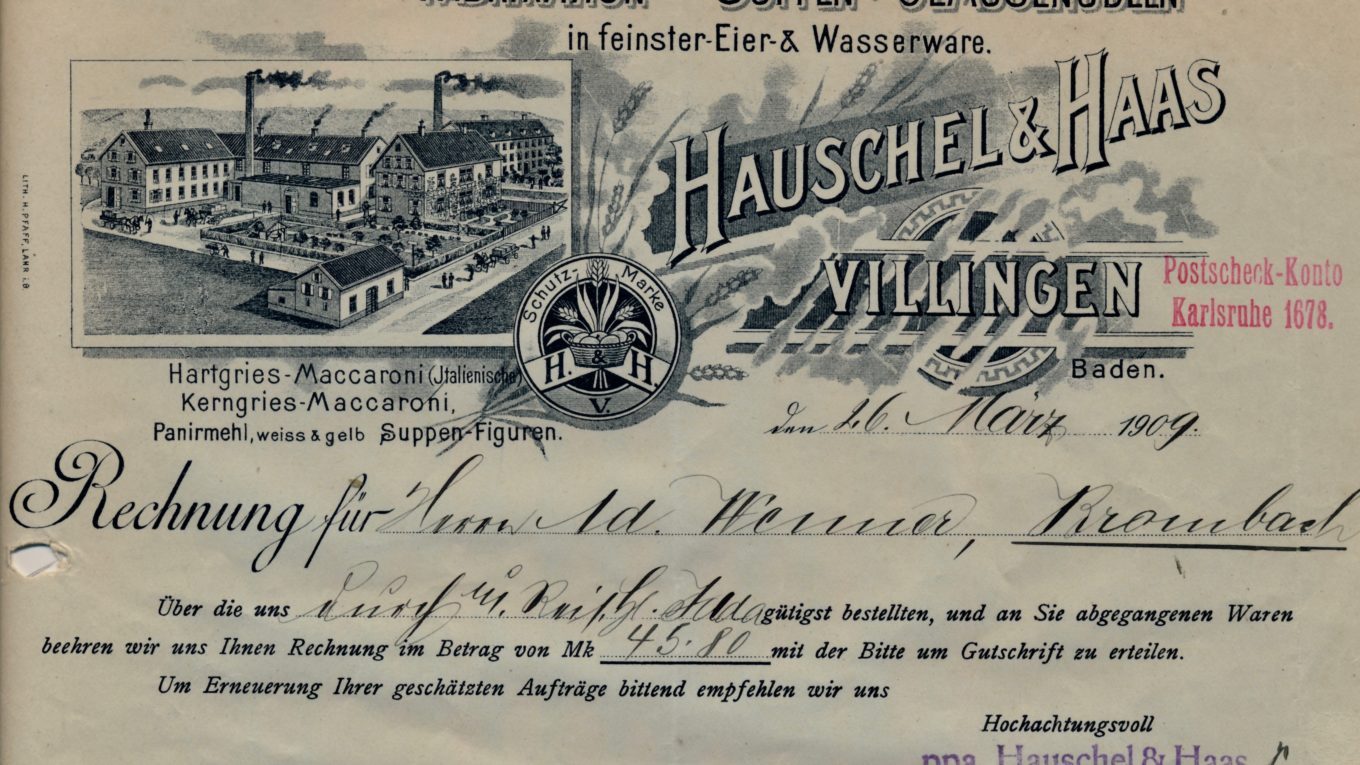 FABRIKATION SUPPEN- & GEMÜSENUDELN
in feinster-Eier-& Wasserware.
HAUSCHEL & HAAS
VILLINGEN
Postscheck-Konto
Karlsruhe 1678.
Baden.
LITH. H. PFAFF, LAHR i/B
Schutz-Marke
H. & H.
V.
Hartgries-Maccaroni (Jtalienische)
Kerngries-Maccaroni,
Panirmehl, weiss & gelb Suppen-Figuren.
den 26. März 1909.
Rechnung für Herrn Ad. Wenner, Brombach
Über die uns durch gütigst bestellten, und an Sie abgegangenen Waren
beehren wir uns Ihnen Rechnung im Betrag von Mk 45.80 mit der Bitte um Gutschrift zu erteilen.
Um Erneuerung Ihrer geschätzten Aufträge bittend empfehlen wir uns
Hochachtungsvoll
ppa. Hauschel & Haas